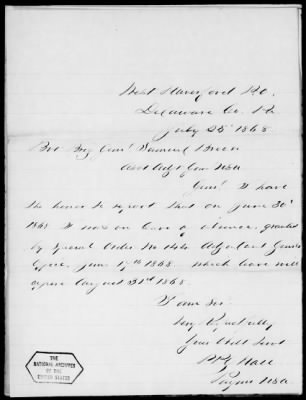 West Haverford P.O.
Delaware Co. Pa
July 25th 1868
Bvt Brig Genl Samuel Breck
Asst Adjt Genl USA
Genl I have
the honor to report that on June 30th
1868 I was on leave of absence, granted
by Special Order No 144 Adjutant Genls
Office, June 17th 1868. which leave will
expire August 31st 1868.
I am Sir
Very Respectfully
Your Obdt Servt
Hall
Paymr USA
THE
NATIONAL ARCHIVES
OF THE
UNITED STATES